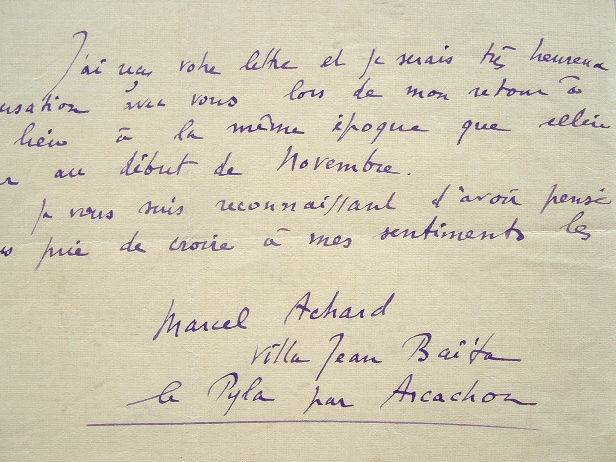 J'ai reçu votre lettre et je serais très heureux
ersation avec vous lors de mon retour à
lieu à la même époque que celui
au début de Novembre.
Je vous suis reconnaissant d'avoir pensé
s prie de croire à mes sentiments les
Marcel Achard
Villa Jean Baïta
le Pyla par Arcachon